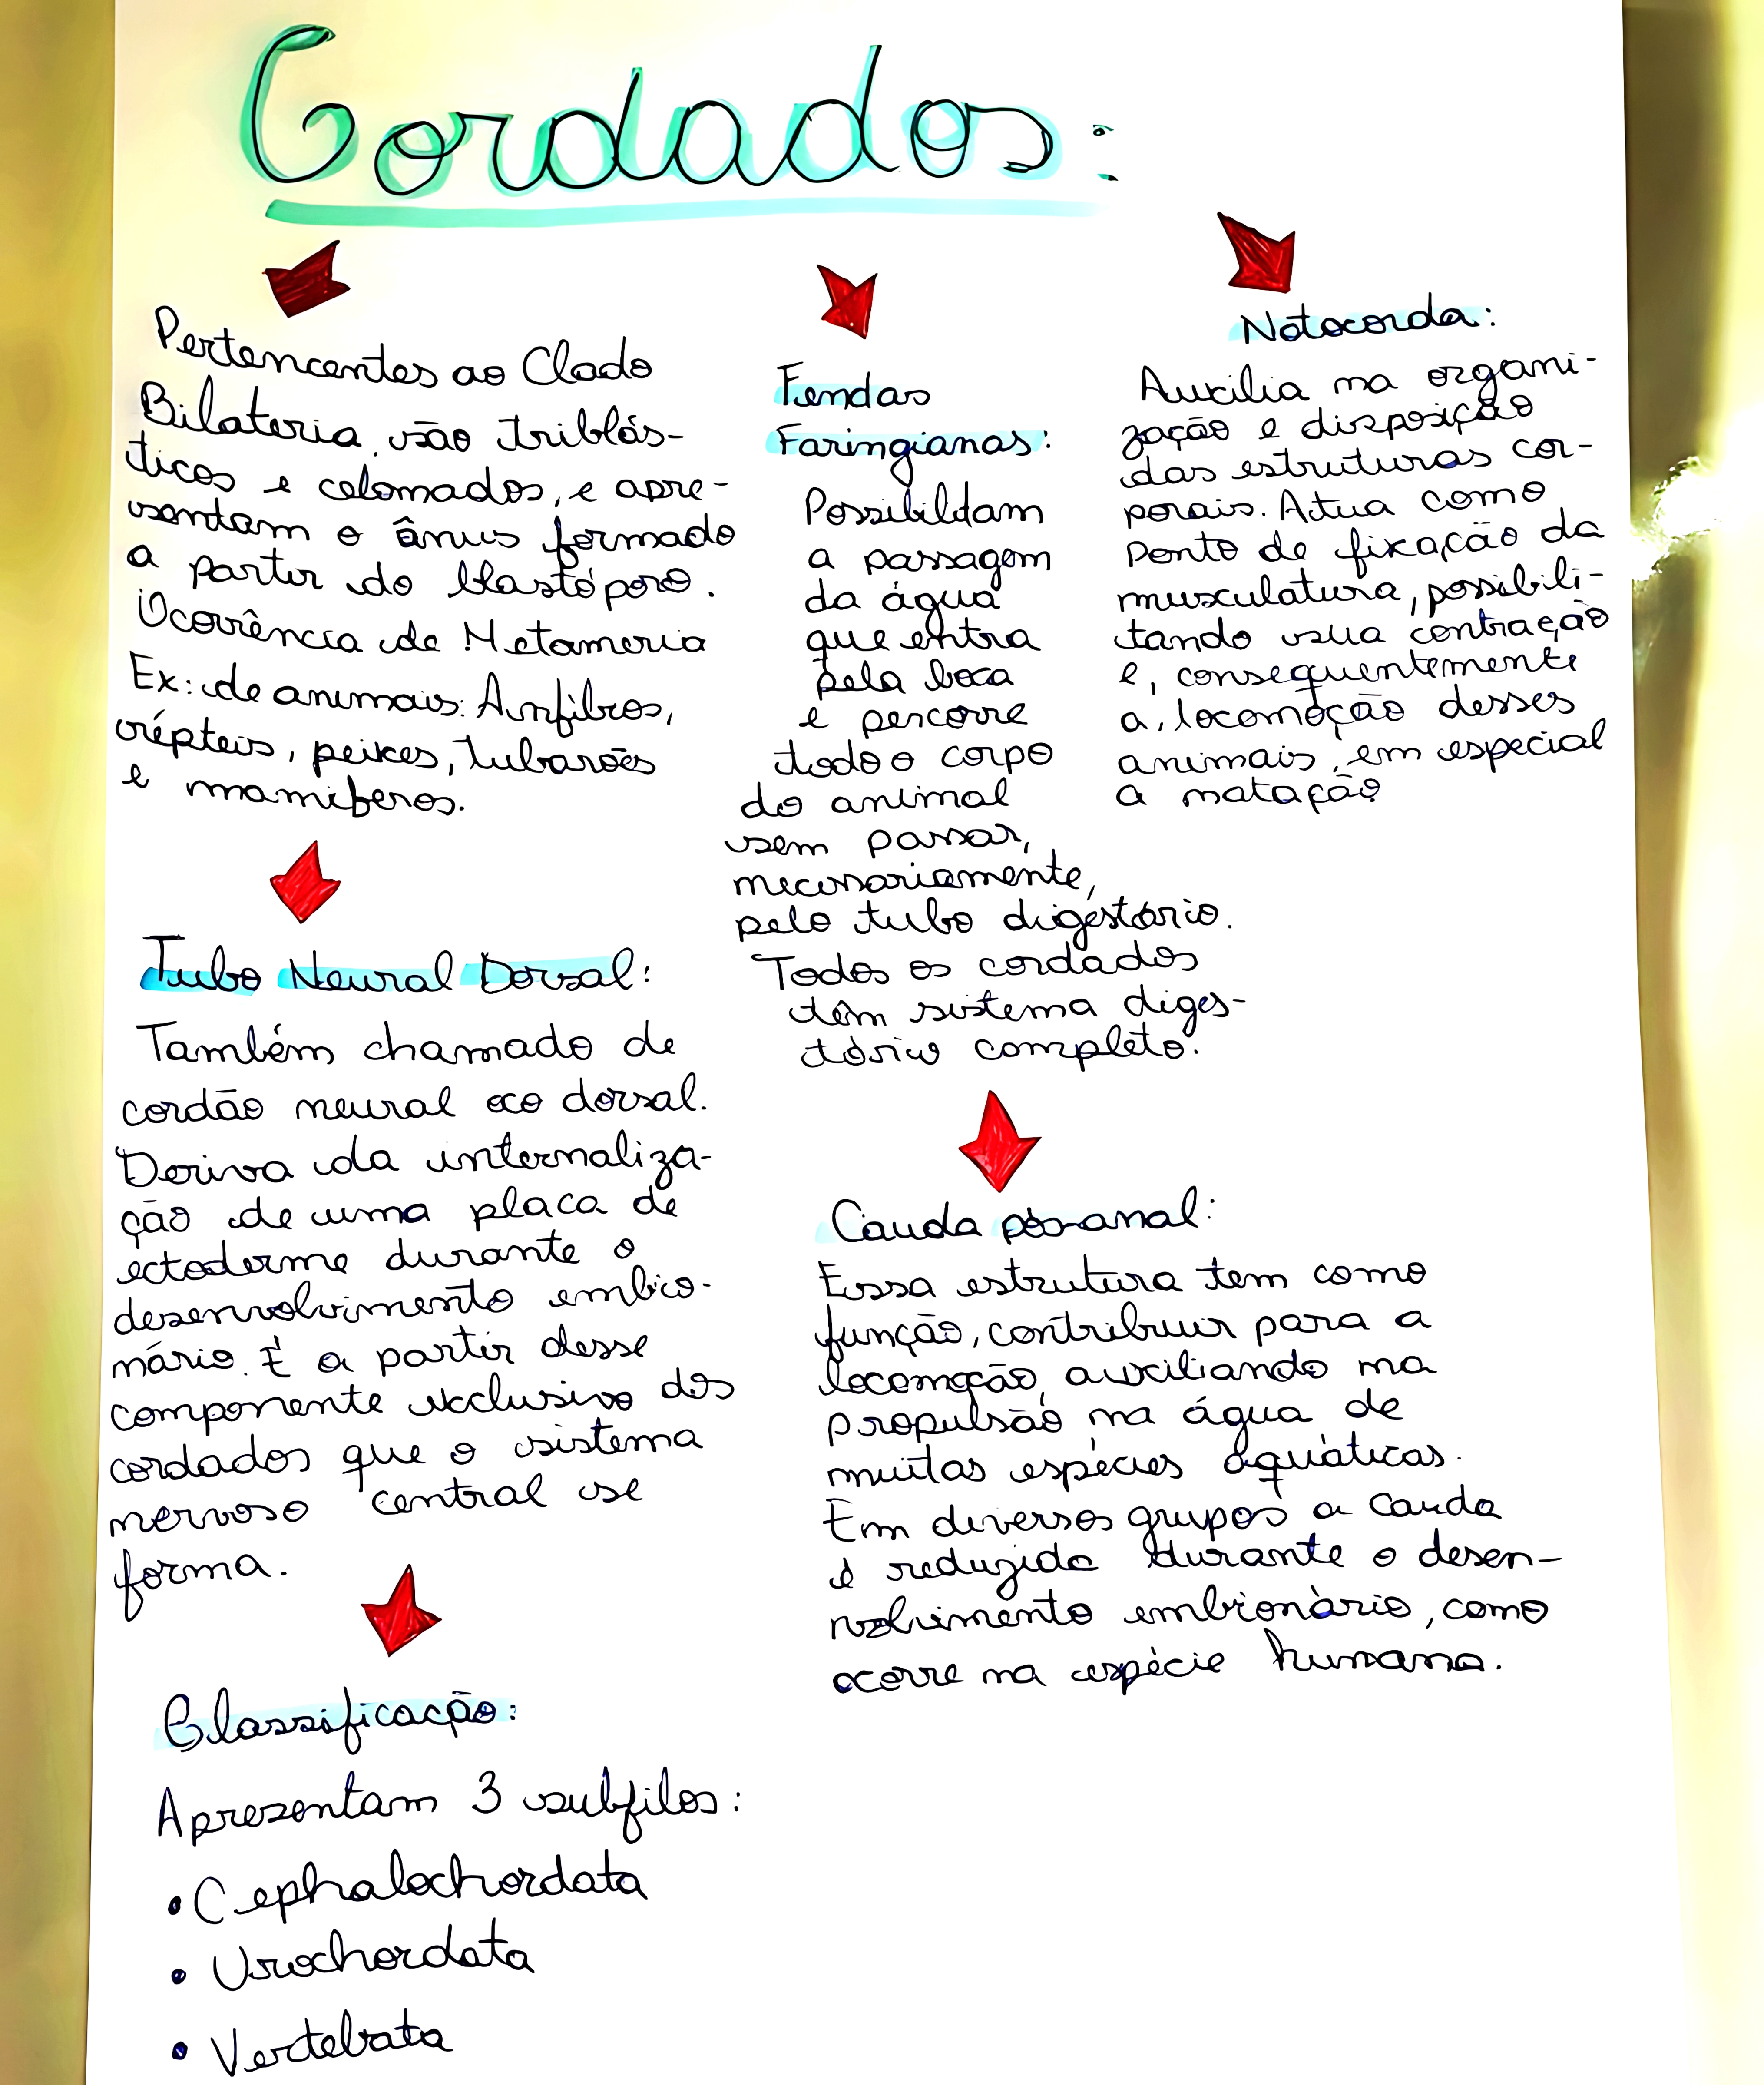 Cordados:
Pertencentes ao Clado
Bilateria, são triblás-
ticos e celomados, e apre-
sentam o ânus formado
a partir do blastóporo.
Ocorrência de Metameria
Ex: de animais: Anfíbios,
répteis, peixes, tubarões
e mamíferos.
Tubo Neural Dorsal:
Também chamado de
cordão neural oco dorsal.
Deriva da internaliza-
ção de uma placa de
ectoderme durante o
desenvolvimento embrio-
nário. É a partir desse
componente exclusivo dos
cordados que o sistema
nervoso central se
forma.
Classificação:
Apresentam 3 subfilos:
• Cephalochordata
• Urochordata
• Vertebrata
Fendas
Faringianas:
Possibilitam
a passagem
da água
que entra
pela boca
e percorre
todo o corpo
do animal
sem passar,
necessariamente,
pelo tubo digestório.
Todos os cordados
têm sistema diges-
tório completo.
Cauda pós-anal:
Essa estrutura tem como
função, contribuir para a
locomoção, auxiliando na
propulsão na água de
muitas espécies aquáticas.
Em diversos grupos a cauda
é reduzida durante o desen-
volvimento embrionário, como
ocorre na espécie humana.
Notocorda:
Auxilia na organi-
zação e disposição
das estruturas cor-
porais. Atua como
ponto de fixação da
musculatura, possibili-
tando sua contração
e, consequentemente
a, locomoção desses
animais, em especial
a natação